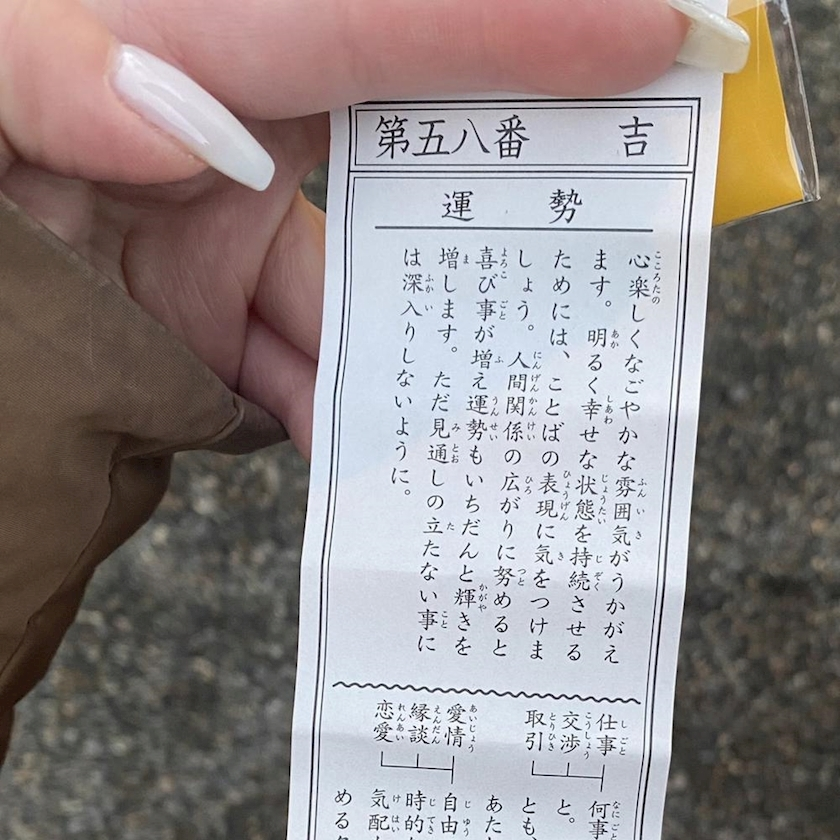 第五八番　吉
運勢
心楽しくなごやかな雰囲気がうかがえ
ます。明るく幸せな状態を持続させる
ためには、ことばの表現に気をつけま
しょう。人間関係の広がりに努めると
喜び事が増え運勢もいちだんと輝きを
増します。ただ見通しの立たない事に
は深入りしないように。
仕事
交渉
取引
何事
と。
とも、
あた
愛情
縁談
恋愛
自由
時的
気配
める